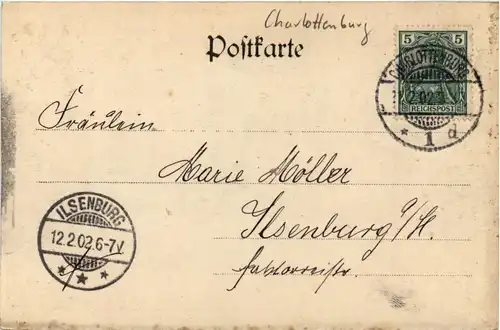 Charlottenburg
Postkarte
5 5
REICHSPOST
CHARLOTTENBURG
12.2.02
* 1 d
Fräulein
Marie Möller
Ilsenburg a/H.
ILSENBURG
12.2.02.6-7V